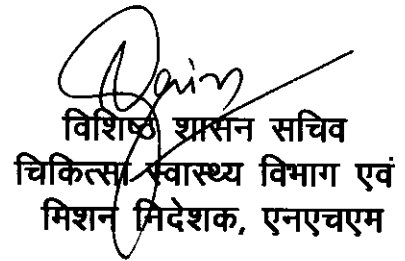 विशिष्ठ शासन सचिव
चिकित्सा स्वास्थ्य विभाग एवं
मिशन निदेशक, एनएचएम